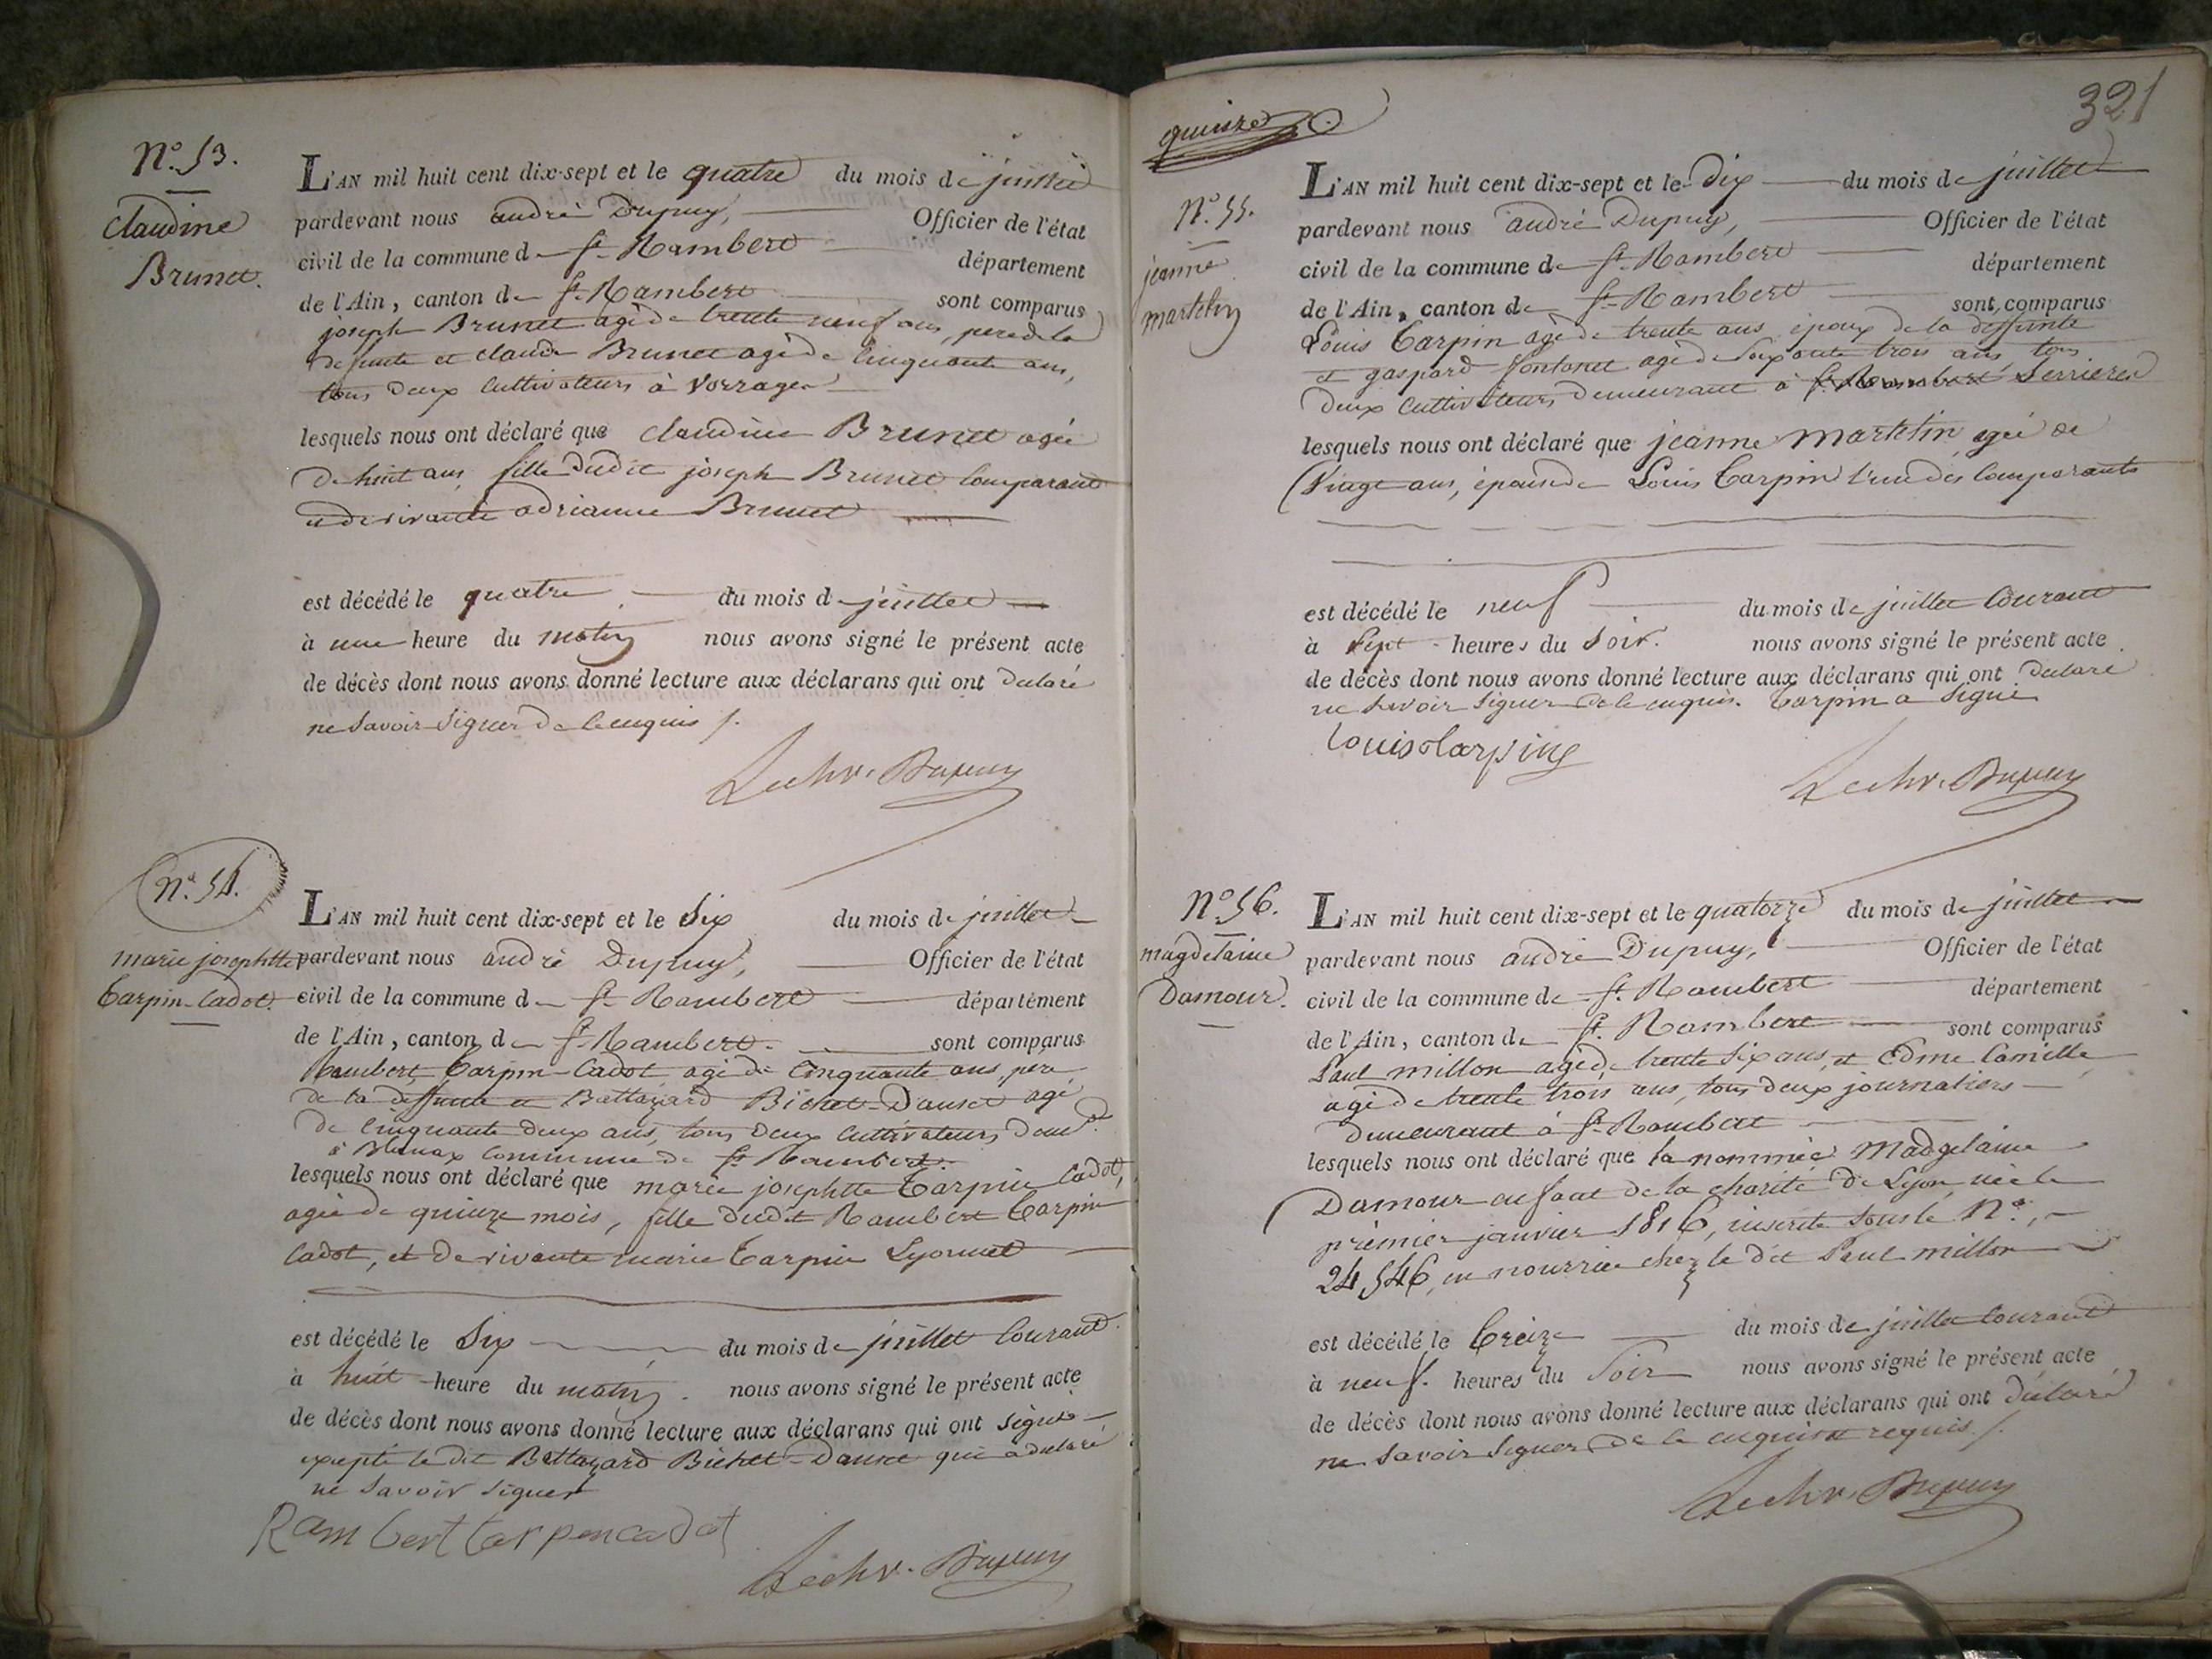 N.º 53.
Claudine
Brunet.
L'AN mil huit cent dix-sept et le quatre du mois de juillet
pardevant nous andré Dupuy, Officier de l'état
civil de la commune d St Rambert département
de l'Ain, canton de St Rambert sont comparus
joseph Brunet agé de trente neuf ans, pere de la
deffunte et claude Brunet agé de Cinquante ans,
tous deux Cultivateurs à Vorrages
lesquels nous ont déclaré que claudine Brunet agée
de huit ans, fille dudit joseph Brunet Comparant
et de vivante adrianne Brunet
est décédé le quatre du mois d juillet
à une heure du matin nous avons signé le présent acte
de décès dont nous avons donné lecture aux déclarans qui ont declaré
ne Savoir Signer de ce enquis /.
Le chr. Dupuy
N.º 54.
marie josephtte
Carpin-Cadot.
L'AN mil huit cent dix-sept et le Six du mois de juillet
pardevant nous andré Dupuy, Officier de l'état
civil de la commune d St Rambert département
de l'Ain, canton d St Rambert. sont comparus
Rambert Carpin-Cadot agé de Cinquante ans, pere
de la deffunte et Battazard Bichet-Dauset agé
de Cinquante deux ans, tous deux Cultivateurs dem.t
à Blanax Commune de St Rambert.
lesquels nous ont déclaré que marie josephtte Carpin Cadot,
agée de quinze mois, fille dudit Rambert Carpin
Cadot, et de vivante marie Carpin Lyonnet
est décédé le Six du mois de juillet Courant
à huit heure du matin. nous avons signé le présent acte
de décès dont nous avons donné lecture aux déclarans qui ont signés
excepté le dit Battazard Bichet-Dauset qui a declaré
ne Savoir Signer
Rambert Carpencadot
Le chr. Dupuy
321
quinze
N.º 55.
jeanne
martelin
L'AN mil huit cent dix-sept et le Dix du mois de juillet
pardevant nous andré Dupuy, Officier de l'état
civil de la commune de St Rambert département
de l'Ain, canton de St Rambert sont comparus
Louis Carpin agé de trente ans époux de la deffunte
et gaspard fontanet agé de Soixante trois ans, tous
deux Cultivateurs demeurant à St Rambert Serrieres
lesquels nous ont déclaré que jeanne martelin, agée de
Vingt ans, épouse de Louis Carpin l'un des Comparants
est décédé le neuf du mois de juillet Courant
à Sept heures du Soir. nous avons signé le présent acte
de décès dont nous avons donné lecture aux déclarans qui ont declaré
ne Savoir Signer de ce enquis. Carpin a Signé
Louis Carping
Le chr. Dupuy
N.º 56.
magdelaine
Damour.
L'AN mil huit cent dix-sept et le quatorze du mois de juillet
pardevant nous andré Dupuy, Officier de l'état
civil de la commune de St Rambert département
de l'Ain, canton de St Rambert sont comparus
Paul millon agé de trente Six ans, et Edme Camille
agé de trente trois ans, tous deux journaliers
demeurant à St Rambert
lesquels nous ont déclaré que la nommée Madgelaine
Damour enfant de la charité de Lyon, née le
premier janvier 1816, inscrite sous le N.º,
24546, en nourrice chez le dit Paul millon
est décédé le treize du mois de juillet Courant
à neuf. heures du Soir nous avons signé le présent acte
de décès dont nous avons donné lecture aux déclarans qui ont déclaré
ne Savoir Signer de ce enquis et requis /.
Le chr. Dupuy